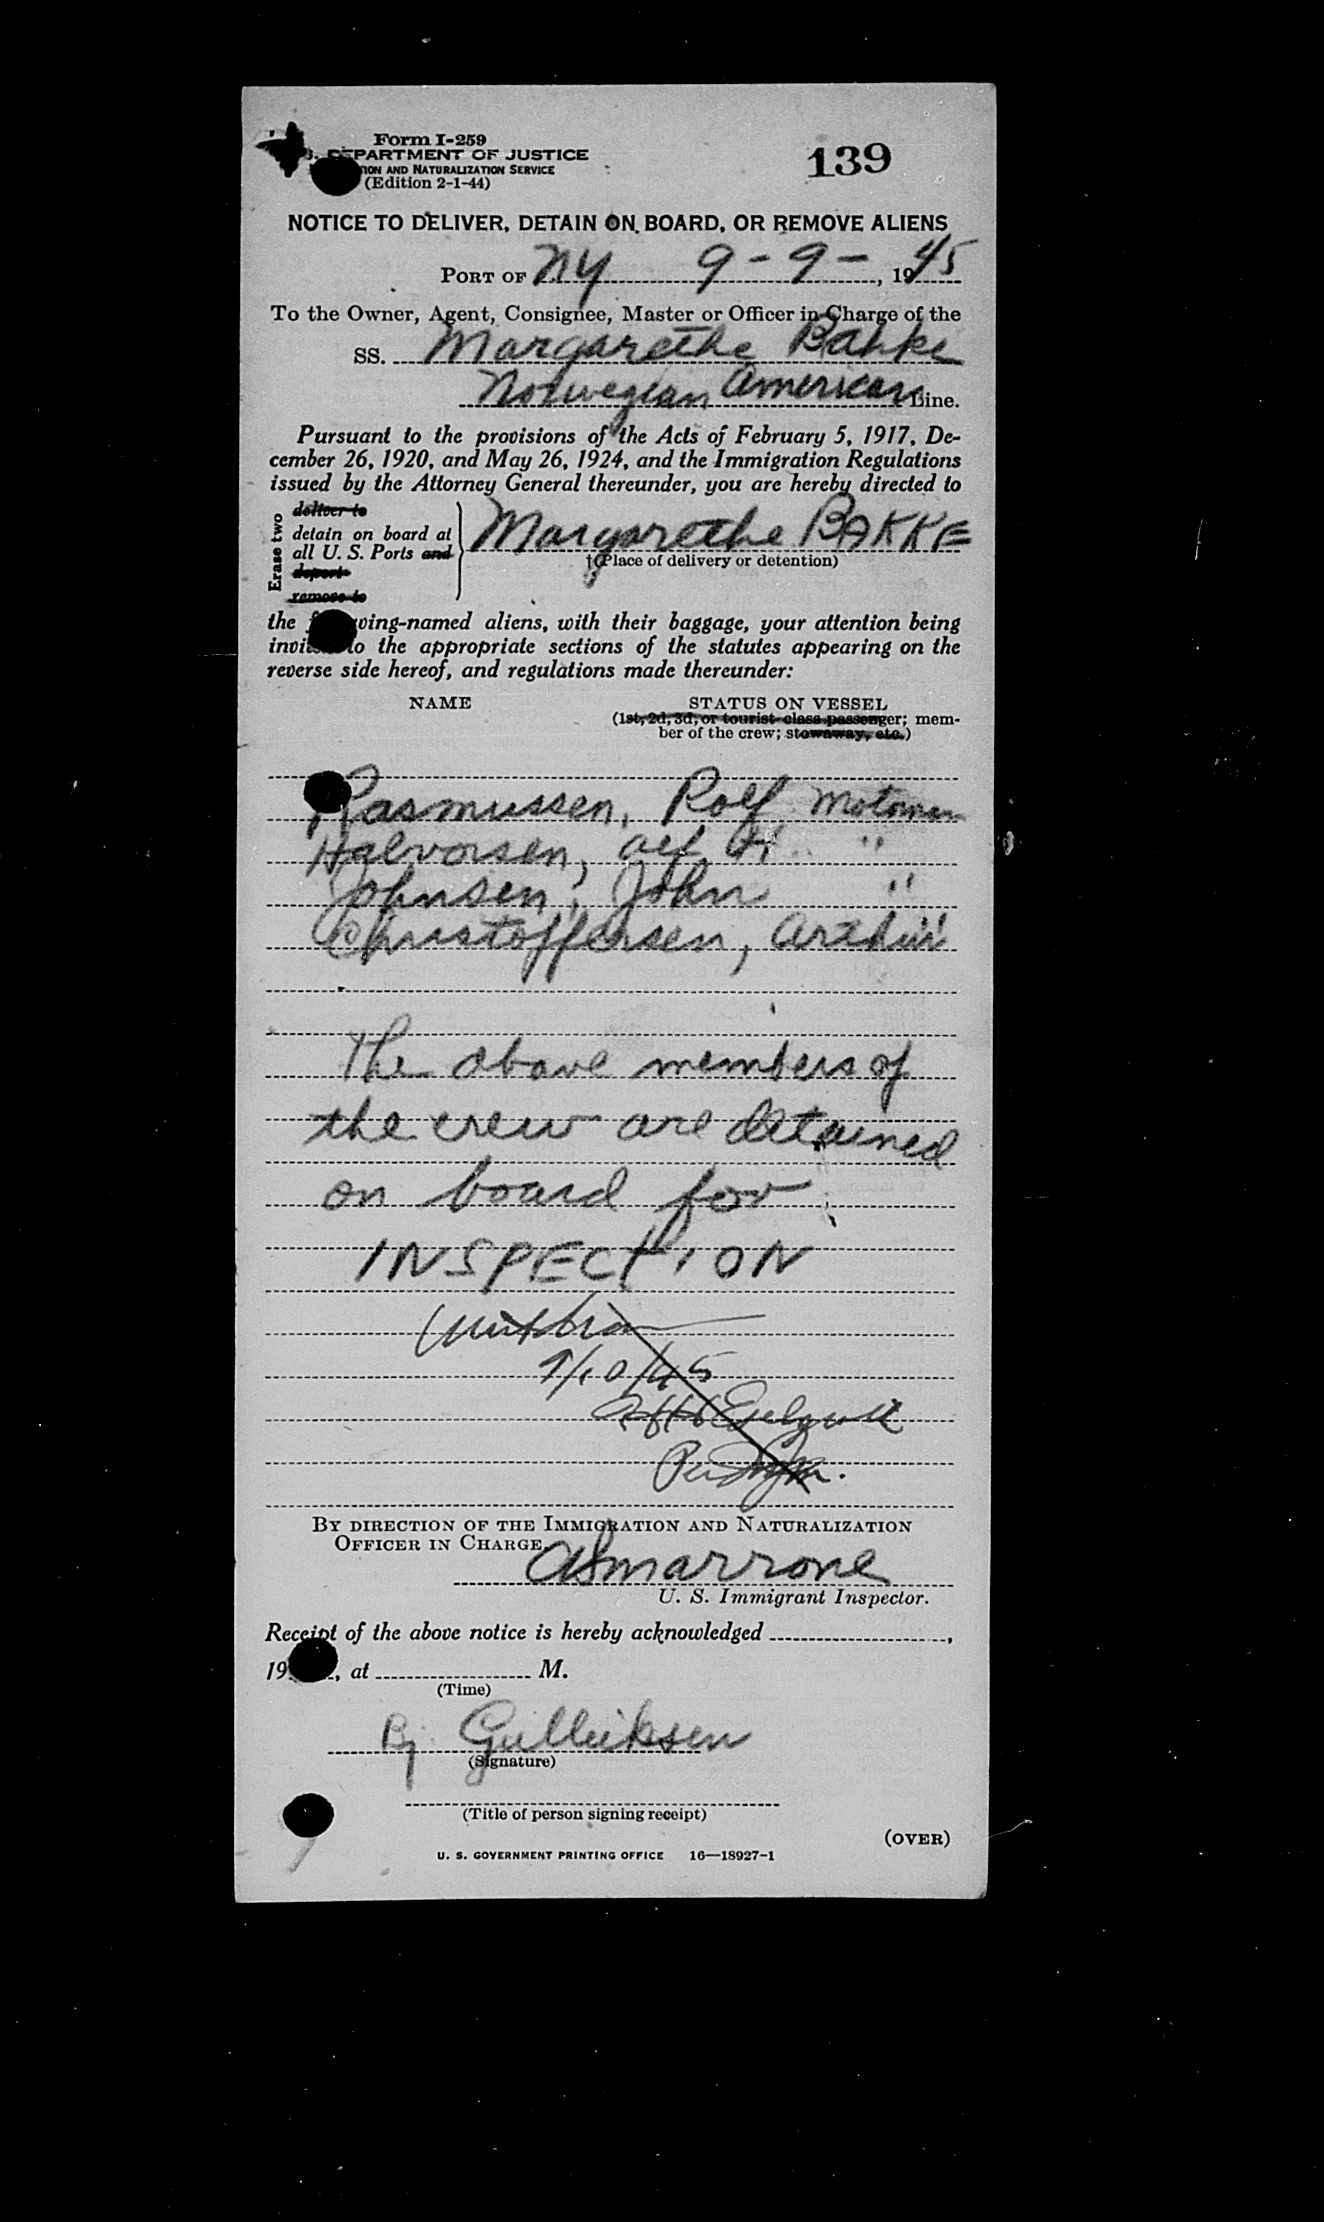 Form I-259
139
DEPARTMENT OF JUSTICE
AND NATURALIZATION SERVICE
(Edition 2-1-44)
NOTICE TO DELIVER, DETAIN ON BOARD, OR REMOVE ALIENS
PORT OF NY 9-9-, 1945
To the Owner, Agent, Consignee, Master or Officer in Charge of the
SS. Margarethe Bakke
Norwegian American Line.
Pursuant to the provisions of the Acts of February 5, 1917, De-
cember 26, 1920, and May 26, 1924, and the Immigration Regulations
issued by the Attorney General thereunder, you are hereby directed to
Erase two
deliver to
detain on board at
all U. S. Ports and
deport
remove to
Margarethe BAKKE
†(Place of delivery or detention)
the following-named aliens, with their baggage, your attention being
invited to the appropriate sections of the statutes appearing on the
reverse side hereof, and regulations made thereunder:
NAME STATUS ON VESSEL
(1st, 2d, 3d, or tourist-class passenger; mem-
ber of the crew; stowaway, etc.)
Rasmussen, Rolf Motorman
Halvorsen, Alf H. "
Johnsen, John "
Christoffersen, Arthur "
The above members of
the crew are detained
on board for
INSPECTION
9/10/45
BY DIRECTION OF THE IMMIGRATION AND NATURALIZATION
OFFICER IN CHARGE.
Marrone
U. S. Immigrant Inspector.
Receipt of the above notice is hereby acknowledged ,
19 , at M.
(Time)
By Gulliksen
(Signature)
(Title of person signing receipt)
(OVER)
U. S. GOVERNMENT PRINTING OFFICE 16—18927-1